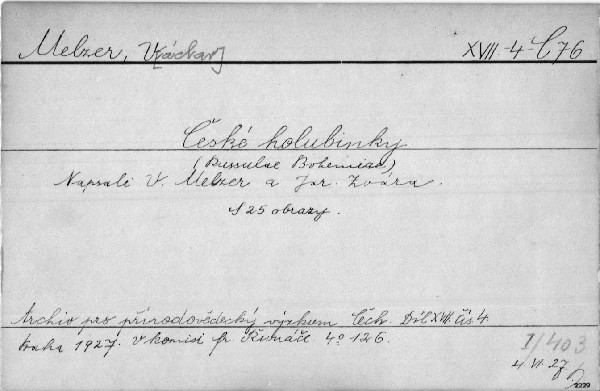 Melzer, V[áclav] XVII-4-C76
České holubinky
(Russulae Bohemiae)
Napsali V. Melzer a Jar. Zvára.
S 25 obrazy.
Archiv pro přírodovědecký výzkum Čech. Díl XVII. čís 4
Praha 1927. V komisi Fr. Řivnáč 4° 126.
I/403
4 VI 27
2229